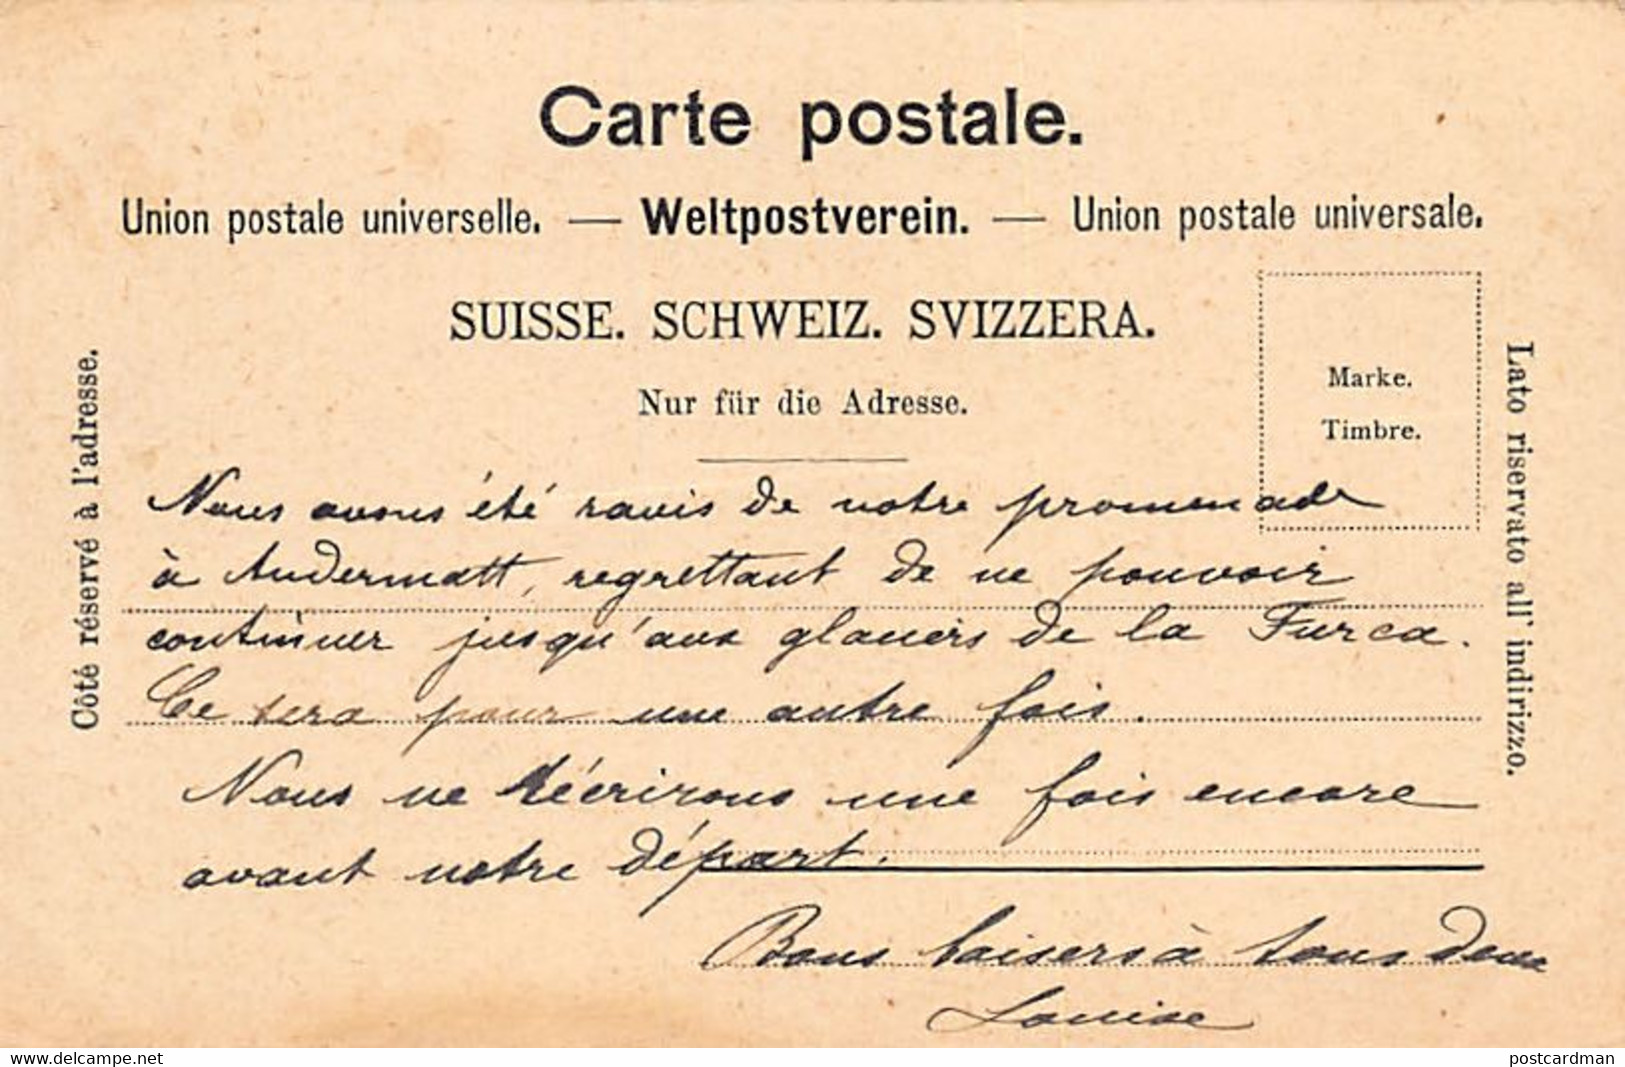 Carte postale.
Union postale universelle. — Weltpostverein. — Union postale universale.
SUISSE. SCHWEIZ. SVIZZERA.
Nur für die Adresse.
Marke.
Timbre.
Côté réservé à l'adresse.
Lato riservato all' indirizzo.
Nous avons été ravis de notre promenade
à Andermatt, regrettant de ne pouvoir
continuer jusqu'aux glaciers de la Furca.
Ce sera pour une autre fois.
Nous ne récrirons une fois encore
avant notre départ.
Bons baisers à tous deux
Louise
www.delcampe.net
postcardman